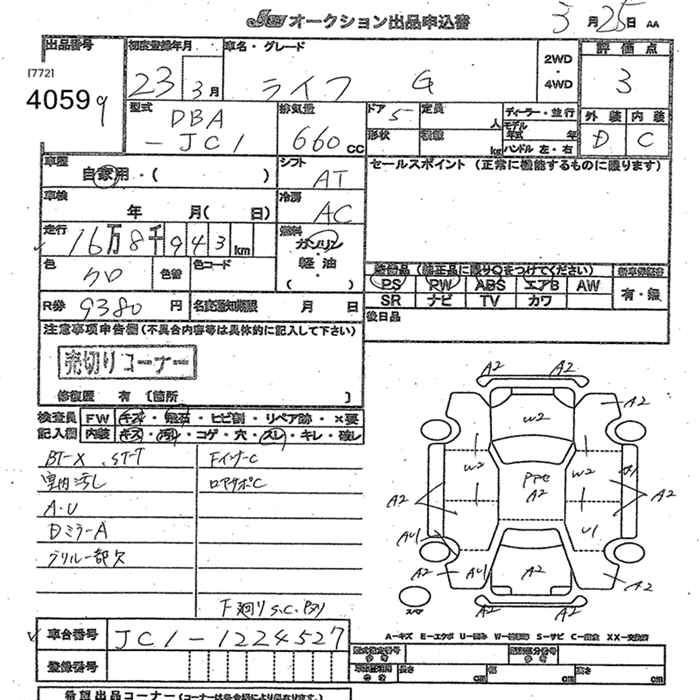 JU オークション出品申込書 3月25日 AA
出品番号 [772] 4059 9
初度登録年月 23年 3月
車名・グレード ライフ G
2WD・4WD
評価点 3
外装 D 内装 C
型式 DBA-JC1
排気量 660cc
ドア 5 形状
定員 人
ディーラー・並行
モデル年式 年
ハンドル 左・右
車歴 自家用・( )
シフト AT
セールスポイント (正常に機能するものに限ります)
車検 年 月( 日)
冷房 AC
走行 16万8千943km
燃料 ガソリン・軽油( )
色 クロ 色替 色コード
装備品 (純正品に限り○をつけてください)
PS PW ABS エアB AW
SR ナビ TV カワ
新車保証書 有・無
R券 9380円
名変通知期限 月 日
後日品
注意事項申告欄(不具合内容等は具体的に記入して下さい)
売切りコーナー
修復歴 有 [箇所 ]
検査員記入欄 FW キズ・飛石・ヒビ割・リペア跡・×要
内装 キズ・汚れ・コゲ・穴・スレ・キレ・破レ
BT-X .ST-T
室内汚し
A.U
Dミラ-A
グリル一部欠
FインナーC
ロアサポC
下廻りS.C.サビ
A2 A2
A2 A2
W2
W2 W2
A2 A2
AU1 U1
A2 AU1 A2 A2
A2 A2
スペア
車台番号 JC1-1224527
登録番号
A-キズ E-エクボ U-凹み W-補修跡 S-サビ C-腐食 XX-交換済
型式指定番号 参考
類別区分番号 参考
長さ cm 幅 cm 高さ cm
希望出品コーナー